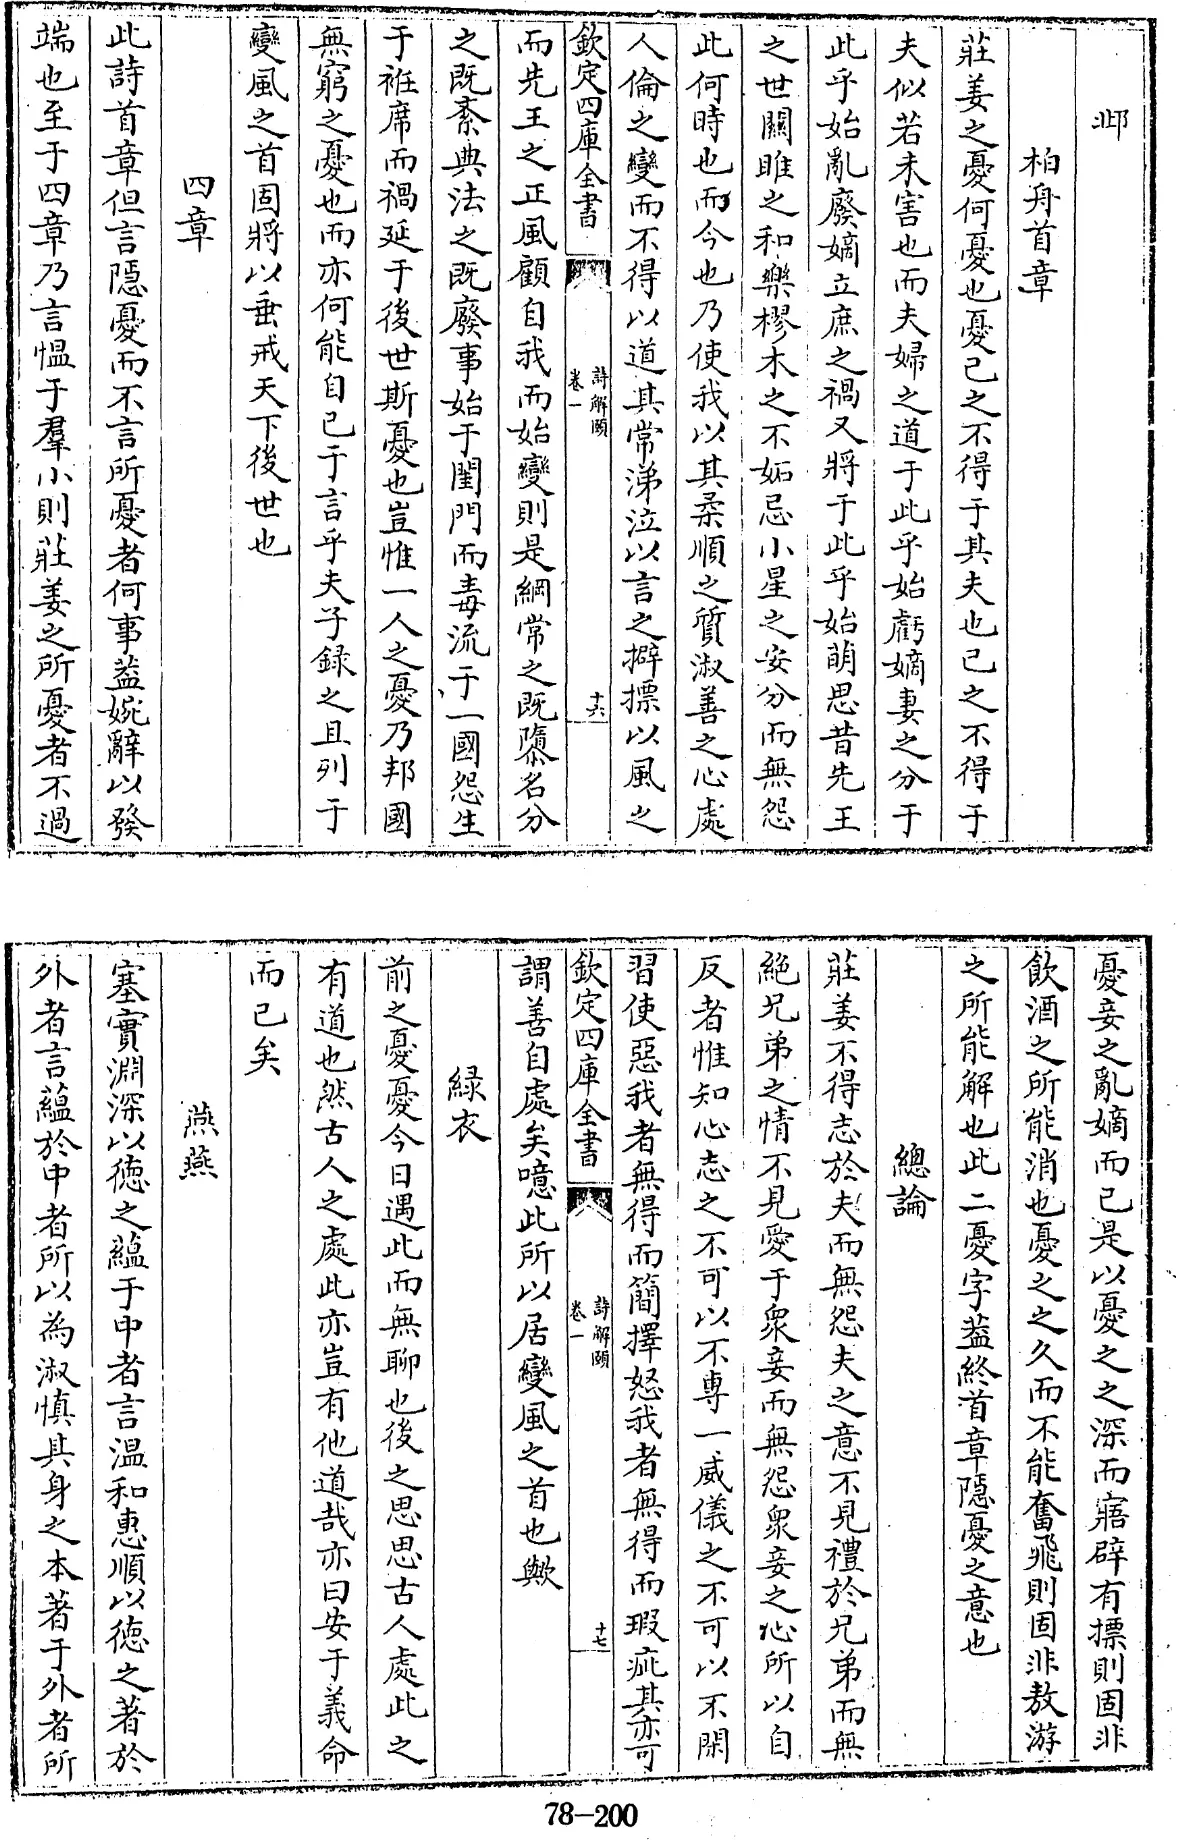 邶
柏舟首章
莊姜之憂何憂也憂己之不得于其夫也己之不得于
夫似若未害也而夫婦之道于此乎始虧嫡妻之分于
此乎始亂廢嫡立庶之禍又將于此乎始萌思昔先王
之世關雎之和樂樛木之不妬忌小星之安分而無怨
此何時也而今也乃使我以其柔順之質淑善之心處
人倫之變而不得以道其常涕泣以言之擗摽以風之
欽定四庫全書
詩解頤
卷一
十六
而先王之正風顧自我而始變則是綱常之既隳名分
之既紊典法之既廢事始于閨門而毒流于一國怨生
于袵席而禍延于後世斯憂也豈惟一人之憂乃邦國
無窮之憂也而亦何能自已于言乎夫子録之且列于
變風之首固將以垂戒天下後世也
四章
此詩首章但言隱憂而不言所憂者何事葢婉辭以發
端也至于四章乃言慍于羣小則莊姜之所憂者不過
憂妾之亂嫡而已是以憂之之深而寤辟有摽則固非
飲酒之所能消也憂之之久而不能奮飛則固非敖游
之所能解也此二憂字葢終首章隱憂之意也
總論
莊姜不得志於夫而無怨夫之意不見禮於兄弟而無
絶兄弟之情不見愛于衆妾而無怨衆妾之心所以自
反者惟知心志之不可以不專一威儀之不可以不閑
習使惡我者無得而簡擇怒我者無得而瑕疵其亦可
欽定四庫全書
詩解頤
卷一
十七
謂善自處矣噫此所以居變風之首也歟
緑衣
前之憂憂今日遇此而無聊也後之思思古人處此之
有道也然古人之處此亦豈有他道哉亦曰安于義命
而已矣
燕燕
塞實淵深以徳之藴于中者言温和惠順以徳之著於
外者言藴於中者所以為淑慎其身之本著于外者所
78-200